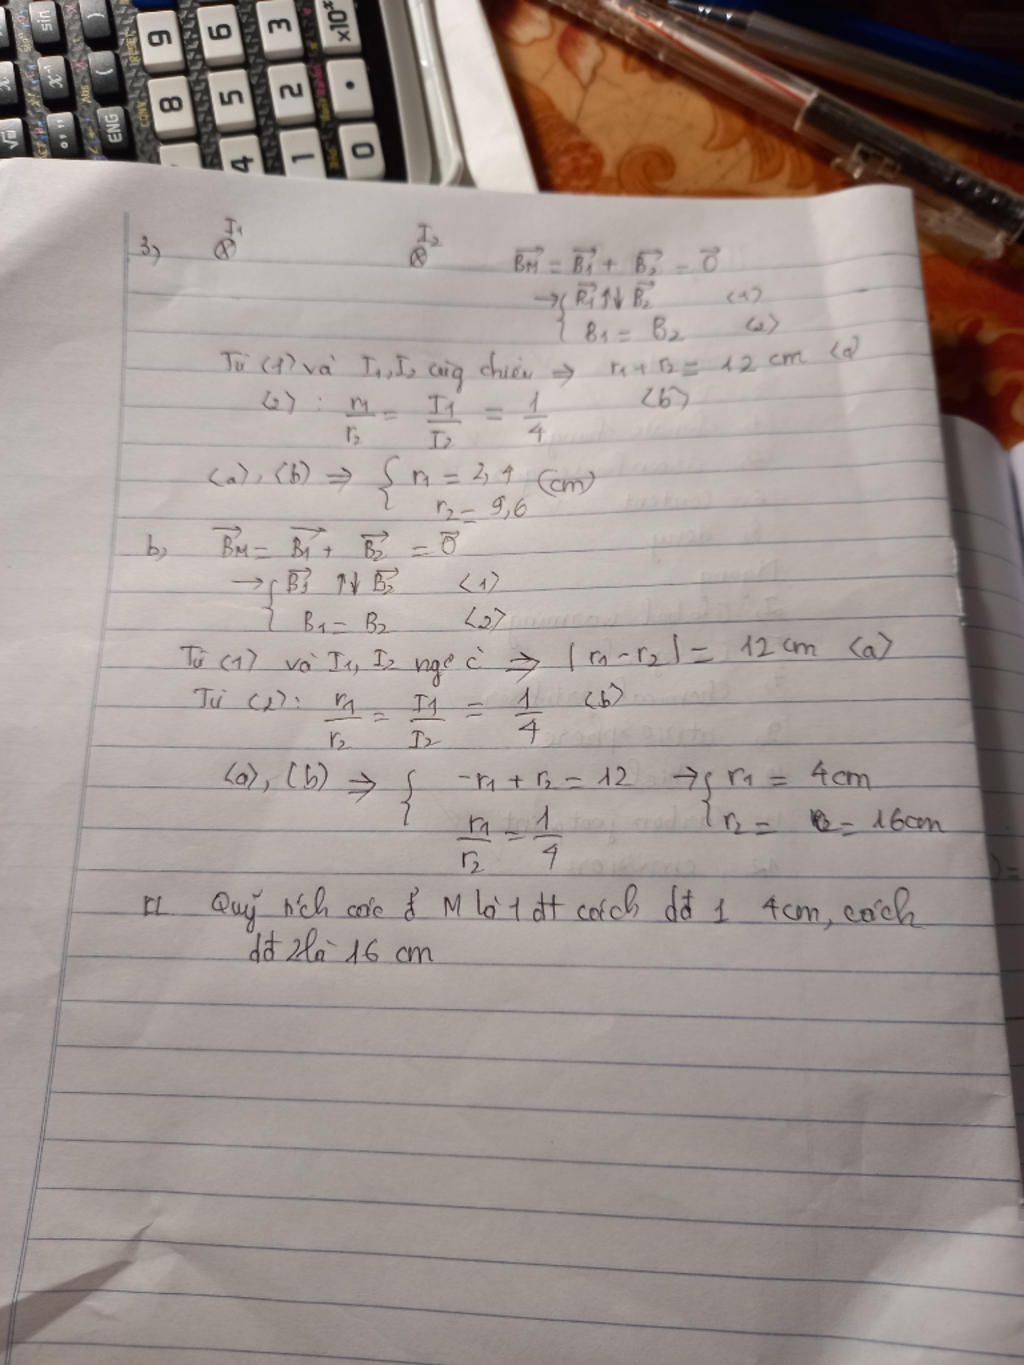 sin
)
9
6
3
×10ˣ
x⁻¹
(
8
5
2
.
√
°,,,
ENG
4
1
0
3) I₁ I₂
⊗ ⊗
B⃗M = B⃗1 + B⃗2 = 0⃗
→ { B⃗1 ↑↓ B⃗2 <1>
B1 = B2 <2>
Từ <1> và I1, I2 cùng chiều ⇒ r1 + r2 = 12 cm <a>
<2> : r1/r2 = I1/I2 = 1/4 <b>
<a>, <b> ⇒ { r1 = 2,4 (cm)
r2 = 9,6
b, B⃗M = B⃗1 + B⃗2 = 0⃗
→ { B⃗1 ↑↓ B⃗2 <1>
B1 = B2 <2>
Từ <1> và I1, I2 ngc ⇒ |r1 - r2| = 12cm <a>
Từ <2>: r1/r2 = I1/I2 = 1/4 <b>
<a>, <b> ⇒ { -r1 + r2 = 12 → { r1 = 4cm
r1/r2 = 1/4 r2 = 16cm
Quỹ tích các M là 1 đt cách dđ 1 4cm, cách
dđ 2 là 16 cm